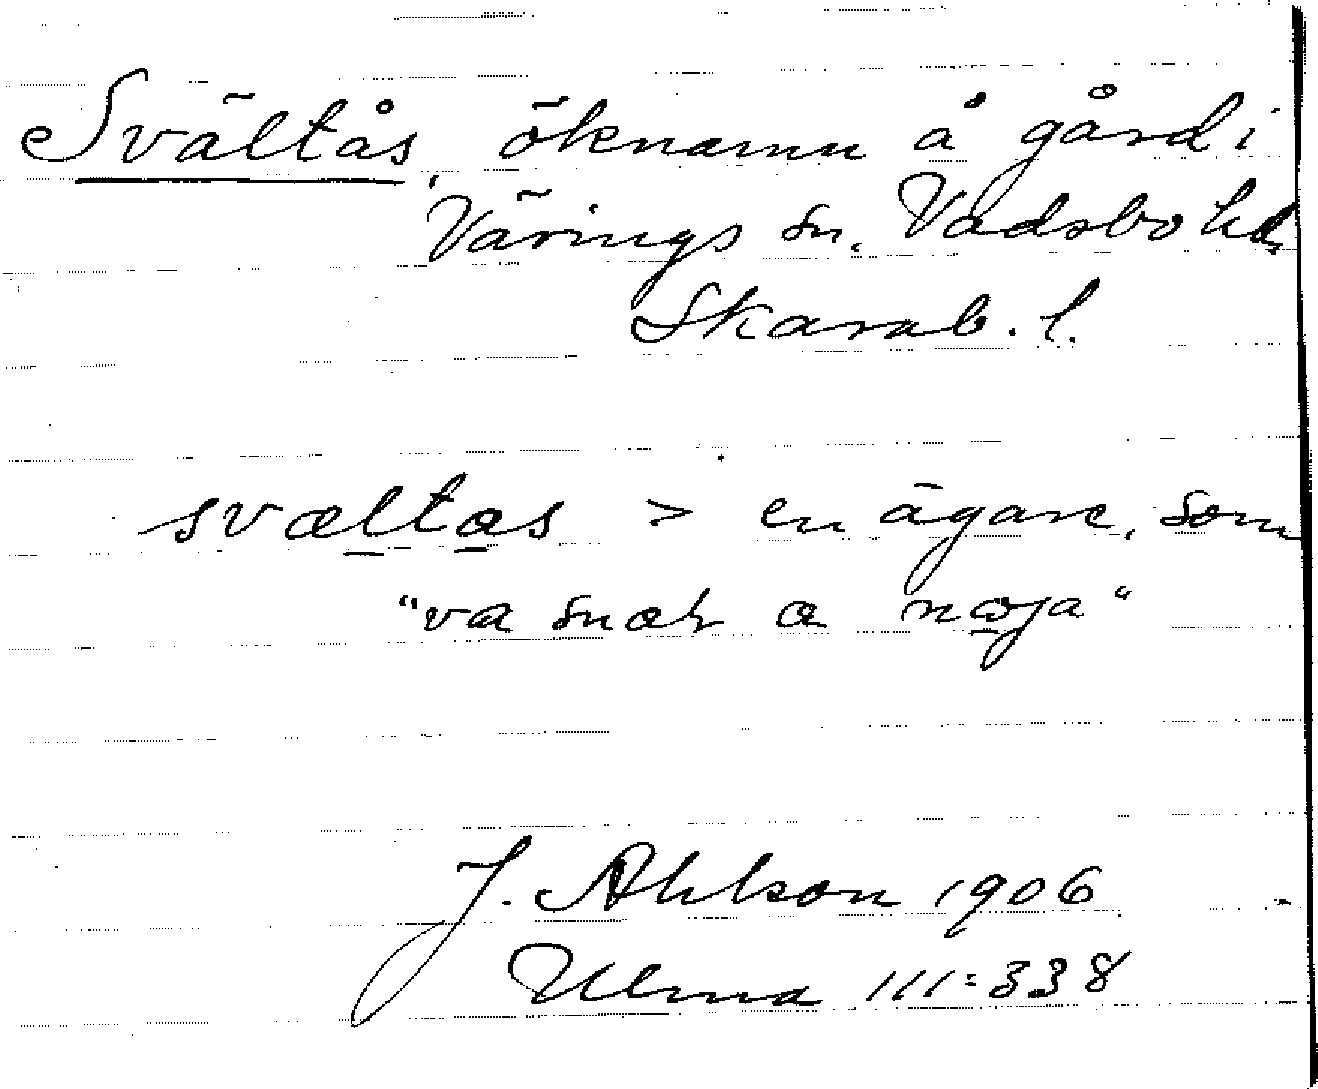 Svältås, öknamn å gård i
Värings sn. Vadsbo hd,
Skarab. l.
svæltas > en ägare, som
"va snah a næja"
J. Ahlson 1906
Ulma 111:338